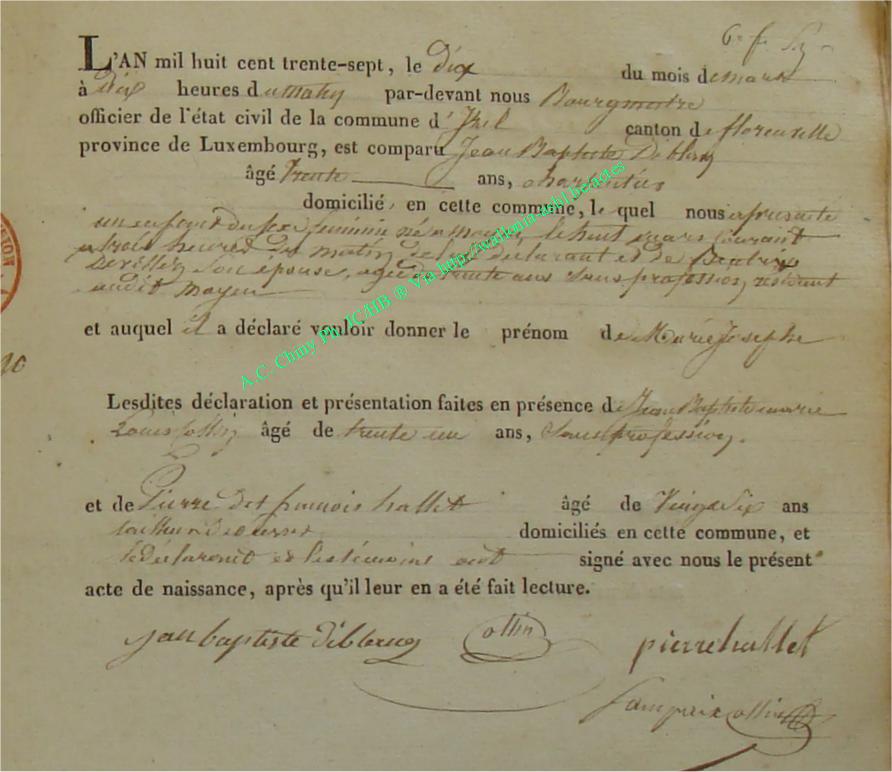 L'AN mil huit cent trente-sept, le dix du mois de mars
à dix heures du matin par-devant nous Bourgmestre
officier de l'état civil de la commune d'Izel canton de florenville
province de Luxembourg, est comparu Jean Baptiste
âgé trente ans, charpentier
domicilié en cette commune, lequel nous a présenté
un enfant du sexe féminin né a moyen, le huit mars courant
a trois heures du matin de lui déclarant et de
son épouse, agée de trente ans sans profession, résidant
audit moyen
et auquel il a déclaré vouloir donner le prénom de Marie Josephe
10
Lesdites déclaration et présentation faites en présence de Jean Baptiste marie
Louis collin âgé de trente un ans, sans profession,
et de Pierre dit francois hallet âgé de Vingt Six ans
domiciliés en cette commune, et
le déclarant et les témoins ont signé avec nous le présent
acte de naissance, après qu'il leur en a été fait lecture.
jean baptiste collin pierre hallet
collin
A.C. Chiny Ph.JC/HB ® Via http://wallonia-asbl.be/actes